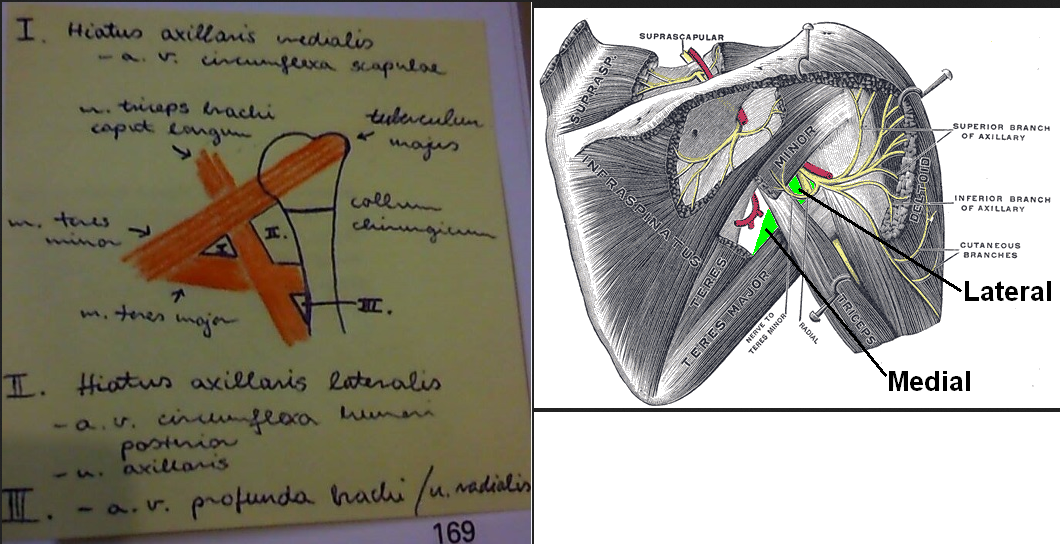 I. Hiatus axillaris medialis
- a. v. circumflexa scapulae
m. triceps brachi
caput longum
tuberculum
majus
collum
chirurgicum
m. teres
minor
I
II.
III.
m. teres major
II. Hiatus axillaris lateralis
- a. v. circumflexa humeri
posterior
- n. axillaris
III. - a. v. profunda brachi / n. radialis
169
SUPRASCAPULAR
SUPRASP.
INFRASPINATUS
MINOR
TERES
TERES MAJOR
NERVE TO
TERES MINOR
RADIAL
TRICEPS
DELTOID
SUPERIOR BRANCH
OF AXILLARY
INFERIOR BRANCH
OF AXILLARY
CUTANEOUS
BRANCHES
Lateral
Medial